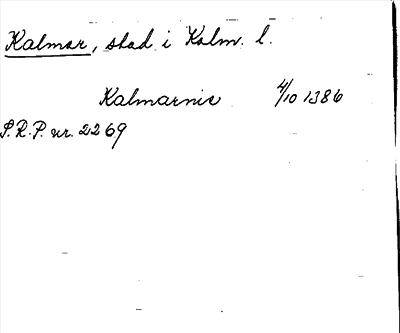 Kalmar, stad i Kalm. l.
Kalmarnis 4/10 1386
S.R.P. nr. 2269